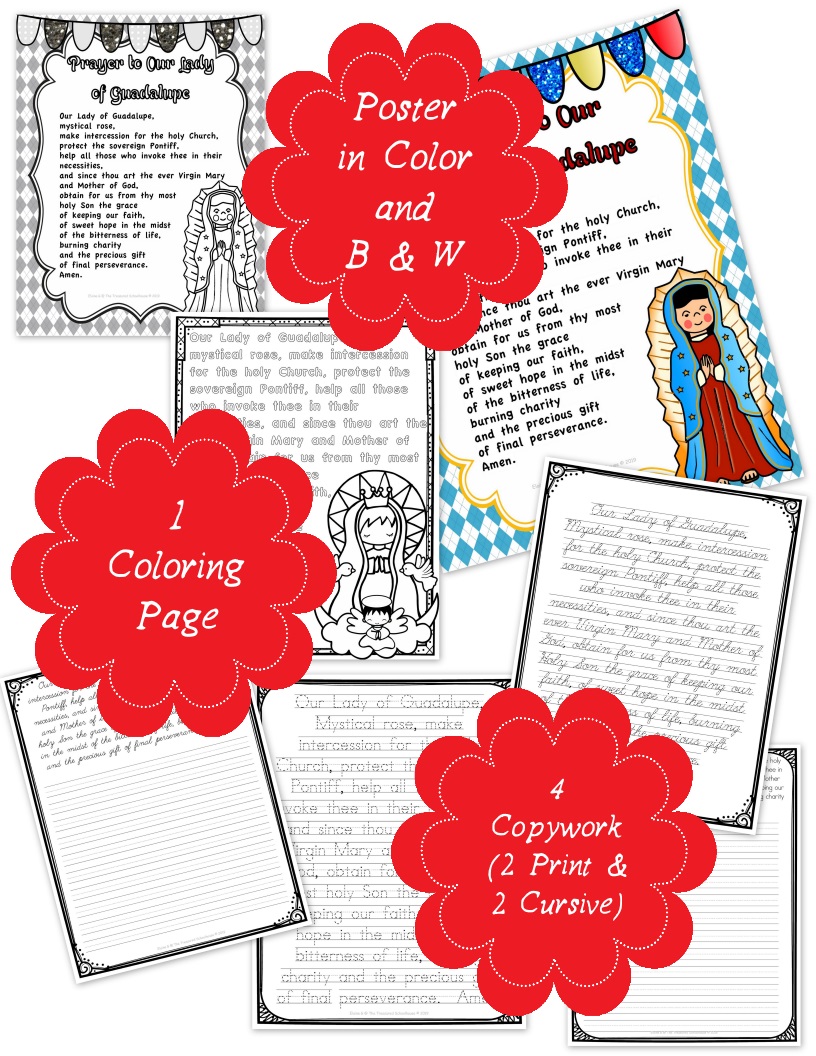 Prayer to Our Lady
of Guadalupe
Our Lady of Guadalupe,
mystical rose,
make intercession for the holy Church,
protect the sovereign Pontiff,
help all those who invoke thee in their
necessities,
and since thou art the ever Virgin Mary
and Mother of God,
obtain for us from thy most
holy Son the grace
of keeping our faith,
of sweet hope in the midst
of the bitterness of life,
burning charity
and the precious gift
of final perseverance.
Amen.
Poster
in Color
and
B & W
to Our
for the holy Church,
Pontiff,
invoke thee in their
thou art the ever Virgin Mary
Mother of God,
obtain for us from thy most
holy Son the grace
of keeping our faith,
of sweet hope in the midst
of the bitterness of life,
burning charity
and the precious gift
of final perseverance.
Amen.
Our Lady of
mystical rose, make intercession
for the holy Church, protect the
sovereign Pontiff, help all those
who invoke thee in their
and since thou art the
Mary and Mother of
for us from thy most
1
Coloring
Page
Our Lady of Guadalupe,
Mystical rose, make intercession
for the holy Church, protect the
sovereign Pontiff, help all those
who invoke thee in their
necessities, and since thou art the
ever Virgin Mary and Mother of
God, obtain for us from thy most
Holy Son the grace of keeping our
faith, of sweet hope in the midst
of life, burning
the precious gift
intercession for
Pontiff, help
necessities, and
and Mother of
holy Son the grace
in the midst of the
and the precious gift of final
Our Lady of Guadalupe,
Mystical rose, make
intercession for
Church, protect
Pontiff, help all
thee in their
and since thou
Mary
obtain
holy Son the
our faith
hope in the
bitterness of life,
charity and the precious
of final perseverance.
4
Copywork
(2 Print &
2 Cursive)
holy
thee in
Mother
our
charity